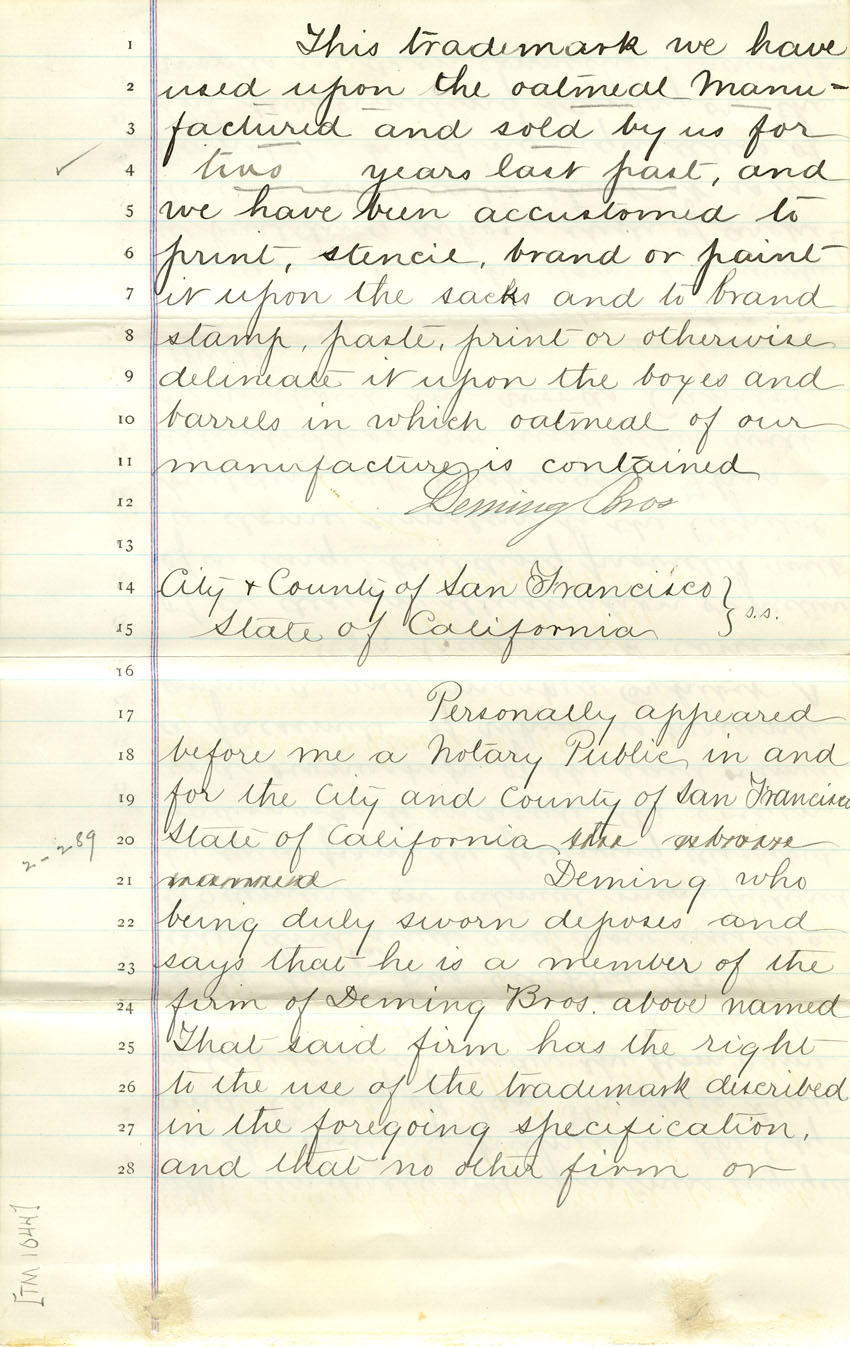 1 This trademark we have
2 used upon the oatmeal Manu-
3 factured and sold by us for
4 two years last past, and
5 we have been accustomed to
6 print, stencil, brand or paint
7 it upon the sacks and to brand
8 stamp, paste, print or otherwise
9 delineate it upon the boxes and
10 barrels in which oatmeal of our
11 manufacture is contained
12 Deming Bros
13
14 City & County of San Francisco } s.s.
15 State of California
16
17 Personally appeared
18 before me a Notary Public, in and
19 for the City and County of San Francisco
20 State of California the above
2-289
21 named Deming who
22 being duly sworn deposes and
23 says that he is a member of the
24 firm of Deming Bros. above named
25 That said firm has the right
26 to the use of the trademark described
27 in the foregoing specification,
28 and that no other firm or
[TM 1044]